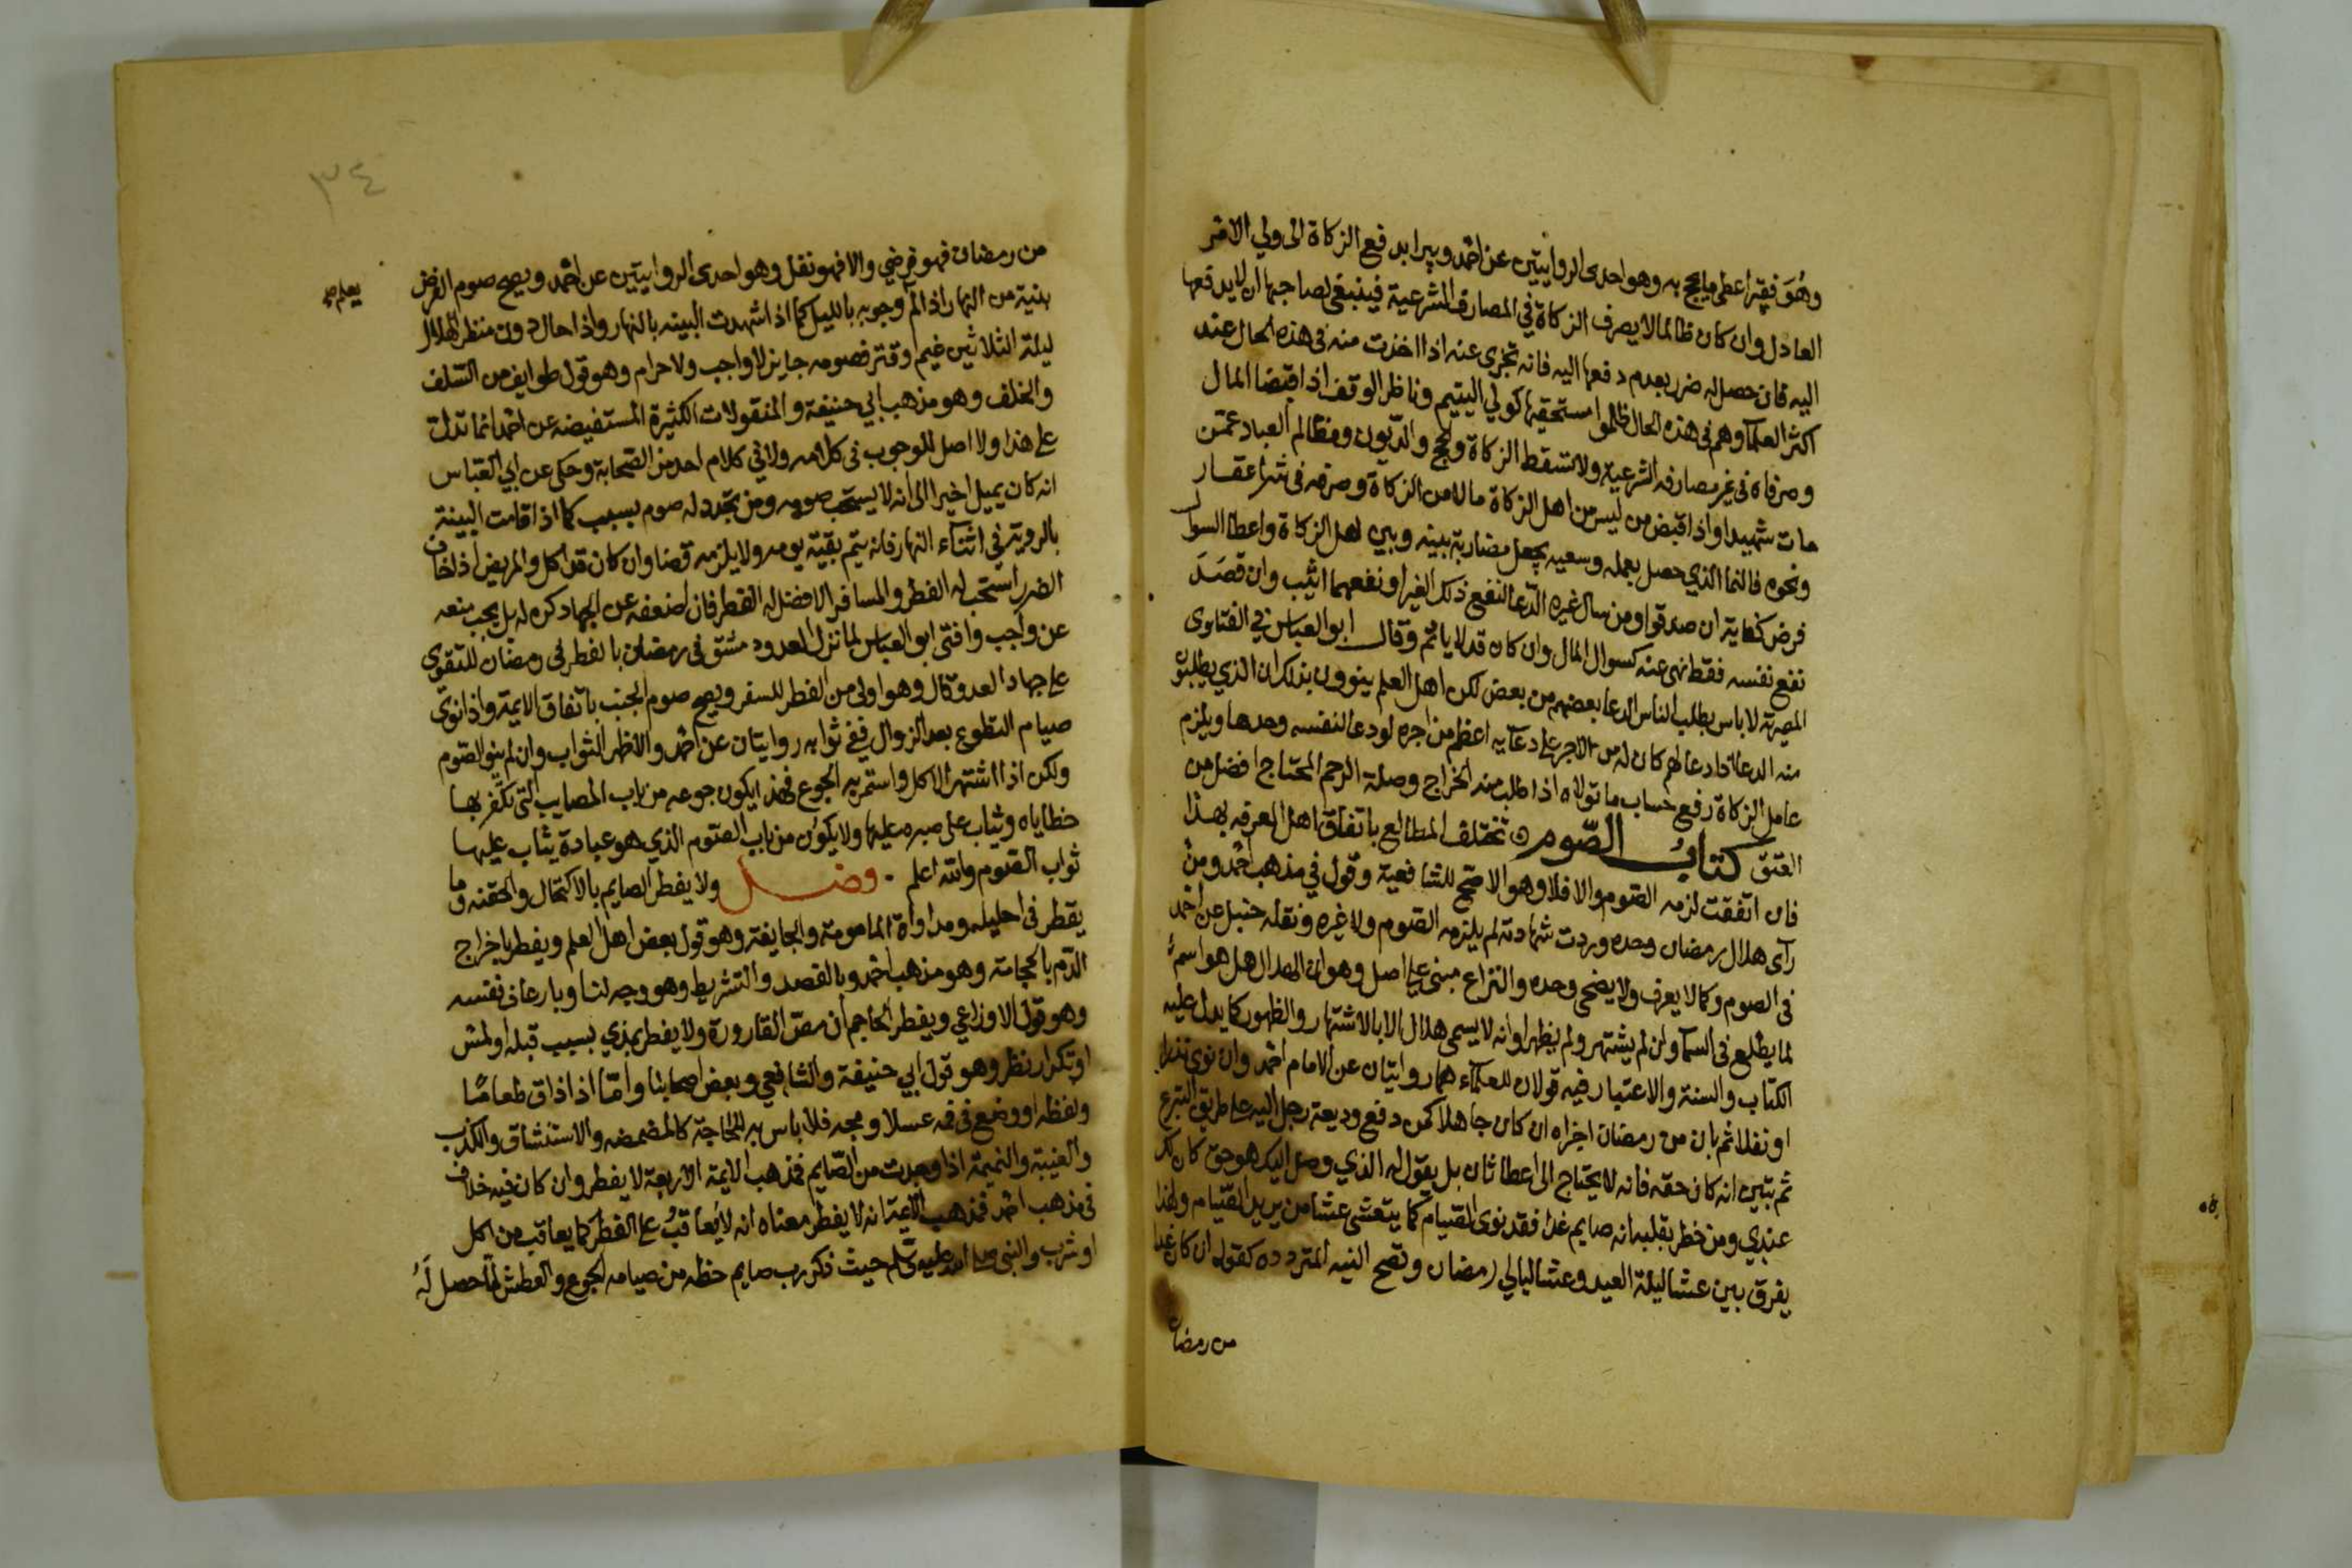 وهُوَ فقير اعطي مايحج به وهو احدى الروايتين عن احمد ويبرا بدفع الزكاة الى ولي الامر
العادل وان كان ظالما لا يصرف الزكاة في المصارف الشرعية فينبغي لصاحبها ان لا يدفعها
اليه فان حصل له ضرر بعدم دفعها اليه فانه تجزى عنه اذا اخذت منه في هذه الحال عند
اكثر العلما وهم في هذه الحال ظلموا مستحقيها كولي اليتيم وناظر الوقف اذا قبضا المال
وصرفاه في غير مصارفه الشرعية ولا تسقط الزكاة والحج والديون ومظالم العباد عمن
مات شهيدا واذا قبض من ليس من اهل الزكاة مالا من الزكاة وصرفه في شرا عقار
ونحوه فالنما الذي حصل بعمله وسعيه يجعل مضاربة بينه وبين اهل الزكاة واعطا السوال
فرض كفاية ان صدقوا ومن سال غيره الدعا لنفع ذلك الغير او نفعهما اثيب وان قصَدَ
نفع نفسه فقط نهي عنه كسوال المال وان كان قد لا ياثم وقال ابو العباس في الفتاوى
المصرية لا باس بطلب الناس الدعا بعضهم من بعض لكن اهل العلم ينوون بذلك ان الذي يطلبون
منه الدعا اذا دعا لهم كان له من الاجر على دعآيه اعظم من اجره لو دعا لنفسه وحدها ويلزم
عامل الزكاة رفع حساب ما تولاه اذا طلب منه الخراج وصلة الرحم المحتاج افضل من
العتق كتابُ الصّوم تختلف المطالع باتفاق اهل المعرفه بهذا
فان اتفقت لزمه الصوم والا فلا وهو الاصح للشافعية وقول في مذهب احمد ومن
رآى هلال رمضان وحده وردت شهادته لم يلزمه الصوم ولا غيره ونقله حنبل عن احمد
في الصوم وكما لا يعرف ولا يضحى وحده والنزاع مبنى على اصل وهو ان الهلال هل هو اسم
لما يطلع في السمآ وان لم يشتهر ولم يظهر او انه لا يسمى هلال الا بالاشتهار والظهور كما يدل عليه
الكتاب والسنة والاعتبار فيه قولان للعلمآء هما روايتان عن الامام احمد وان نوى نذرا
او نفلا ثم بان من رمضان اجزاه ان كان جاهلا كمن دفع وديعة رجل اليه على طريق التبرع
ثم تبين انه كان حقه فانه لا يحتاج الى اعطا ثان بل يقول له الذي وصل اليك هو حق كان لك
عندي ومن خطر بقلبه انه صايم غدا فقد نوى الصيام كما يتعشى عشا من يريد الصيام ولهذا
يفرق بين عشا ليلة العيد وعشا ليالي رمضان وتصح النيه المتردده كقوله ان كان غدا
من رمضان
٣٤
من رمضان فهو فرضي والا فهو نفل وهو احدى الروايتين عن احمد ويصح صوم الفرض
يعلم صح
بنية من النهار اذا لم وجوبه بالليل كما اذا شهدت البينه بالنهار واذا حال دون منظر الهلال
ليلة الثلاثين غيم او قتر فصومه جايز لا واجب ولا حرام وهو قول طوايف من السلف
والخلف وهو مذهب ابي حنيفة والمنقولات الكثيرة المستفيضه عن احمد انما تدل
على هذا ولا اصل للوجوب في كلامه ولا في كلام احد من الصحابة وحكى عن ابي العباس
انه كان يميل اخيرا الى انه لا يستحب صومه ومن تجدد له صوم بسبب كما اذا قامت البينة
بالروية في اثنآء النهار فانه يتم بقية يومه ولا يلزمه قضا وان كان قد اكل والمريض اذا خاف
الضرر استحب له الفطر والمسافر الافضل له الفطر فان اضعفه عن الجهاد كره له بل يجب منعه
عن واجب وافتى ابو العباس لما نزل العدو دمشق في رمضان بالفطر في رمضان للتقوي
على جهاد العدو وقال وهو اولى من الفطر للسفر ويصح صوم الجنب باتفاق الايمة واذا نوى
صيام التطوع بعد الزوال ففي ثوابه روايتان عن احمد والاظهر الثواب وان لم ينو الصوم
ولكن اذا اشتهى الاكل واستمر به الجوع فهذا يكون جوعه من باب المصايب التي تكفر بها
خطاياه ويثاب على صبره عليها ولا يكون من باب الصوم الذي هو عبادة يثاب عليها
ثواب الصوم والله اعلم . فصل ولا يفطر الصايم بالاكتحال والحقنه وما
يقطر في احليله ومداواة المامومة والجايفة وهو قول بعض اهل العلم ويفطر باخراج
الدم بالحجامة وهو مذهب احمد وبالفصد والتشريط وهو وجه لنا وبارعاف نفسه
وهو قول الاوزاعي ويفطر الحاجم ان مص القارورة ولا يفطر بمذي بسبب قبله او لمس
او تكرار نظر وهو قول ابي حنيفة والشافعي وبعض اصحابنا واما اذا ذاق طعامًا
ولفظه او وضع في فمه عسلا ومجه فلا باس به للحاجة كالمضمضه والاستنشاق والكذب
والغيبة والنميمة اذا وجدت من الصّايم فمذهب الايمة الاربعة لا يفطر وان كان فيه خلاف
في مذهب احمد فمذهب الايمة انه لا يفطر معناه انه لا يُعاقبُ على الفطر كما يعاقب من اكل
او شرب والنبي صلى الله عليه وسلم حيث ذكر رب صايم حظه من صيامه الجوع والعطش لما حصل لَهُ